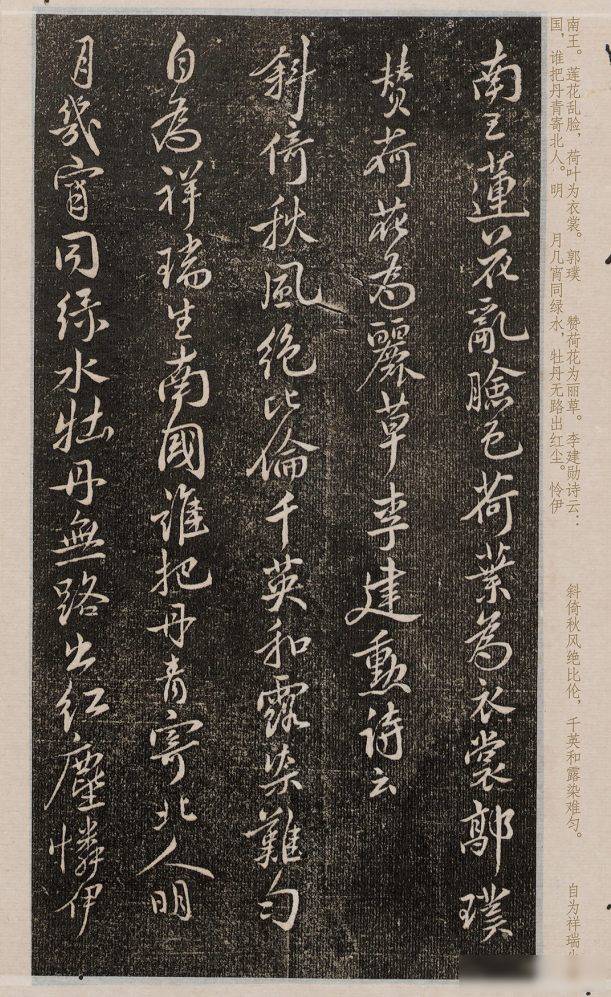 南王。莲花乱脸,荷叶为衣裳。郭璞 赞荷花为丽草。李建勋诗云: 斜倚秋风绝比伦,千英和露染难匀。 自为祥瑞
国,谁把丹青寄北人。明 月几宵同绿水,牡丹无路出红尘。怜伊
南王蓮花亂臉色荷葉為衣裳鄣璞
赞荷花為麗草李建勳诗云
斜倚秋風絶比倫千英和露染難匀
自為祥瑞生南國誰把丹青寄北人明
月幾宵同绿水牡丹無路出红塵憐伊